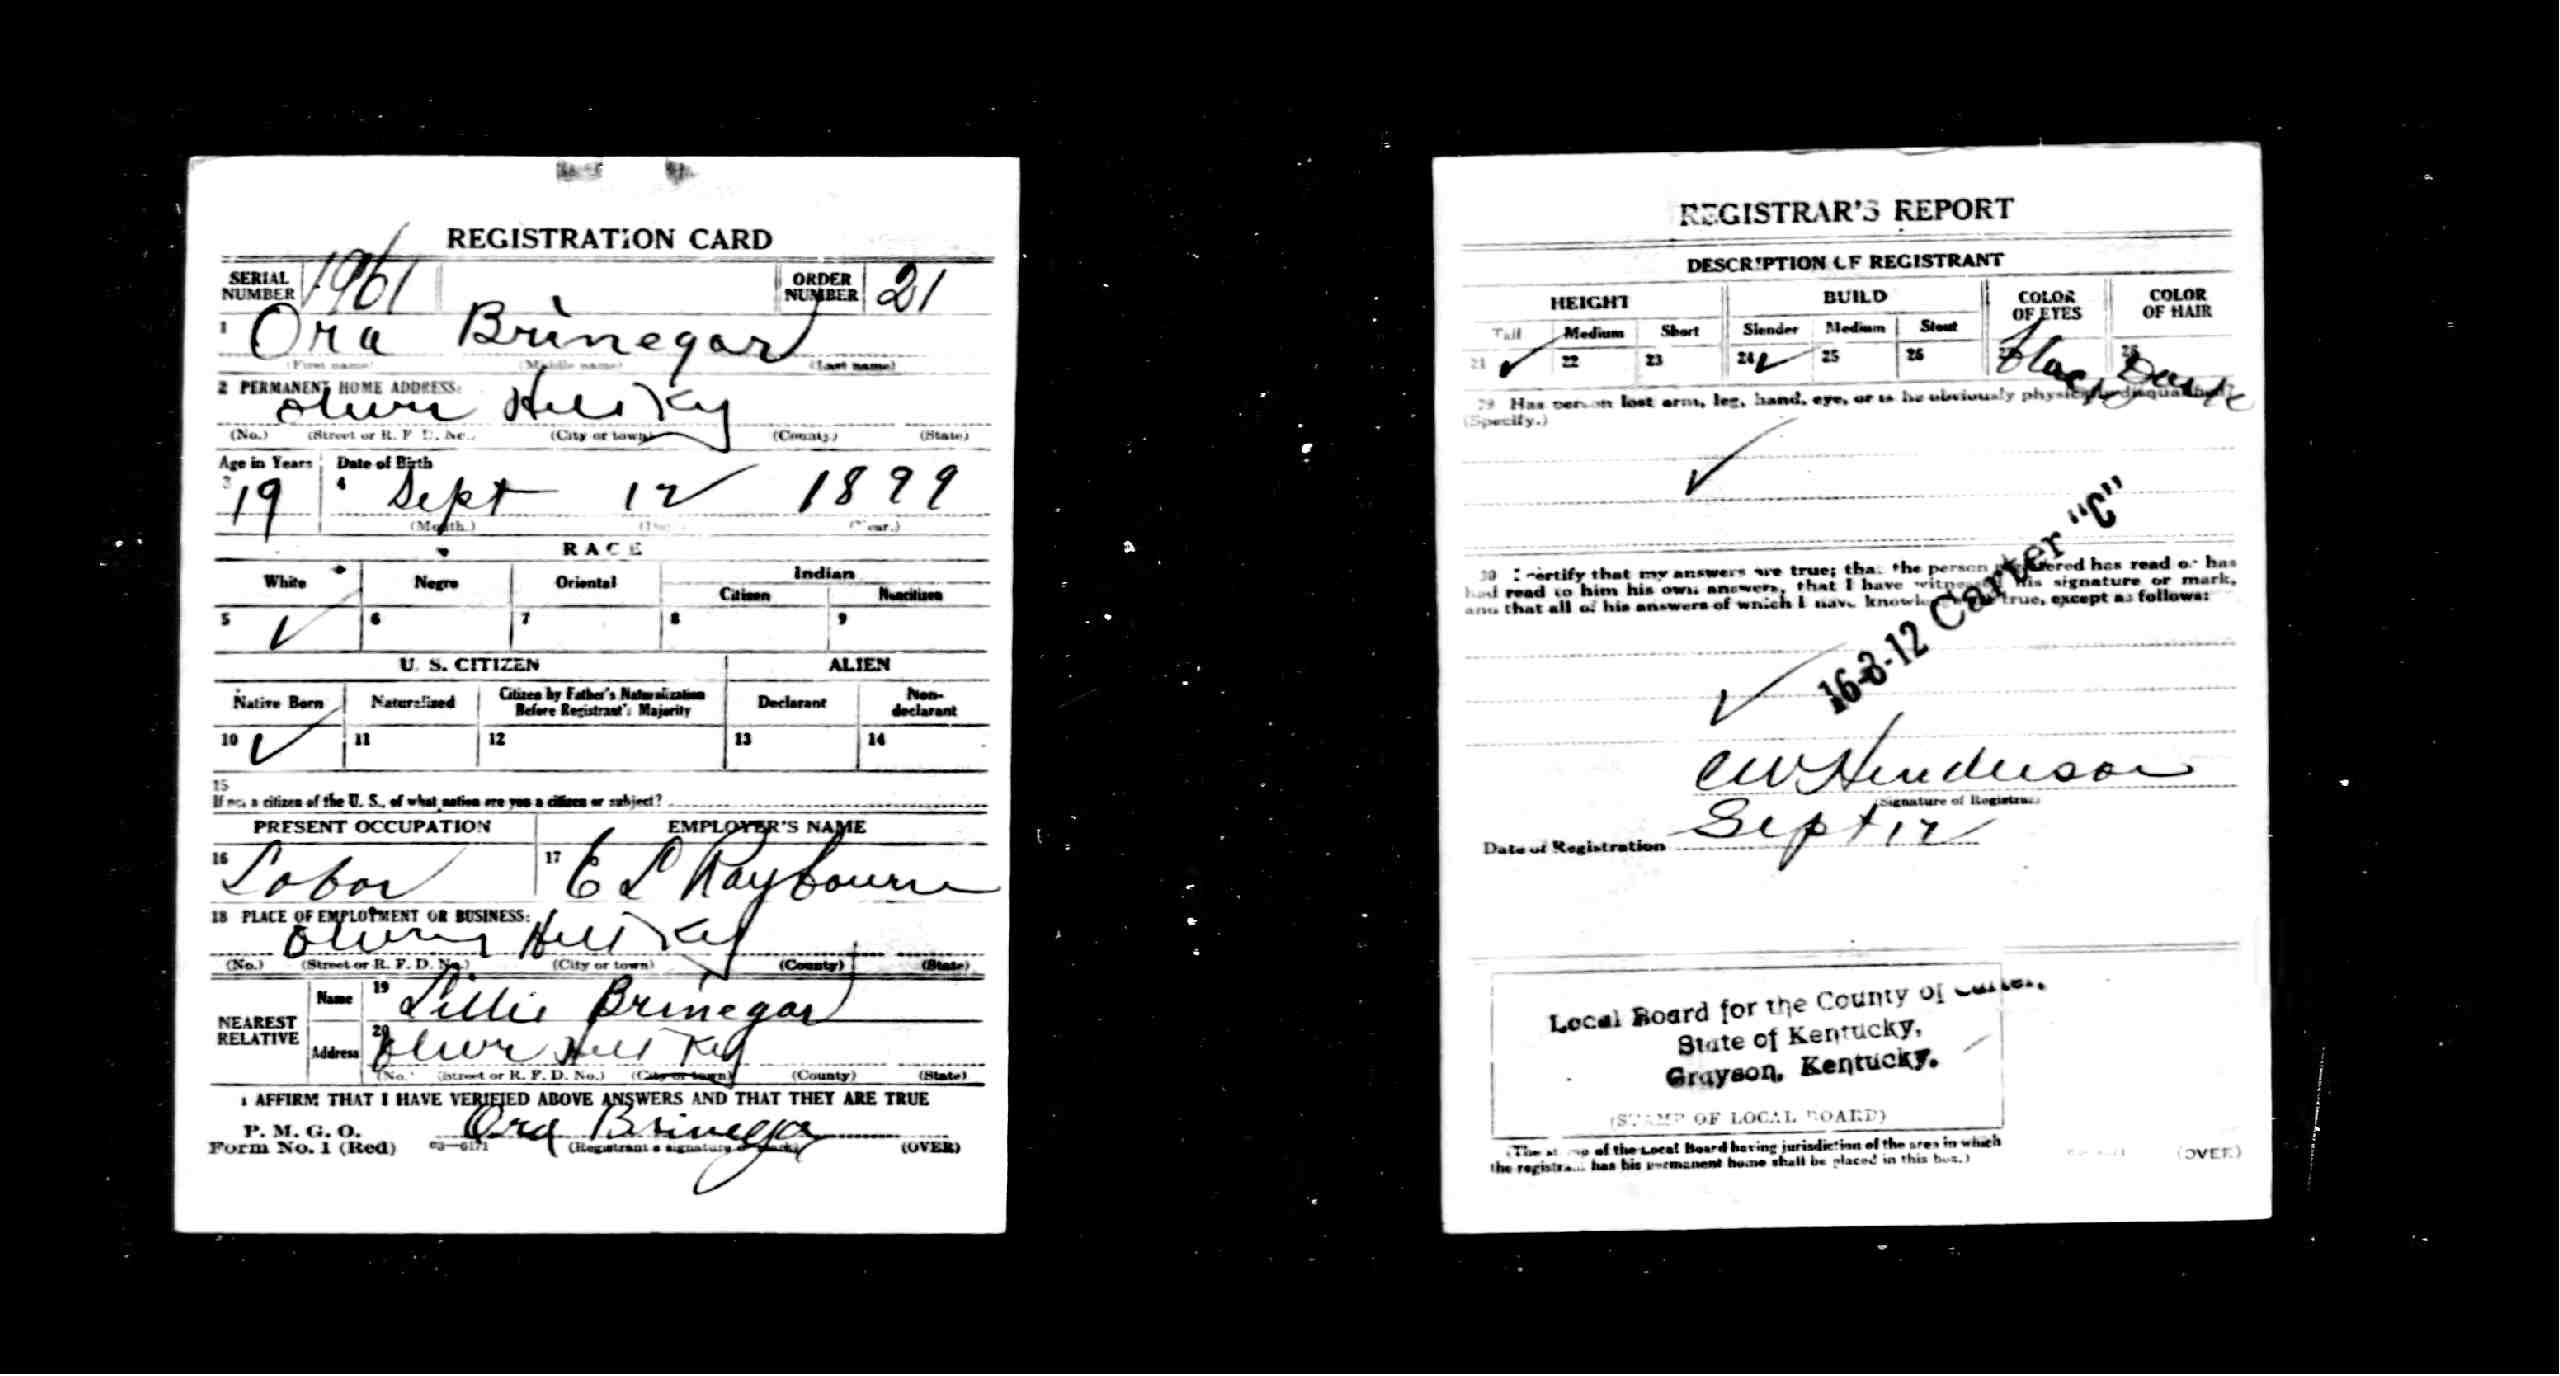 REGISTRATION CARD
SERIAL NUMBER 1961 ORDER NUMBER 21
1 Ora Brinegar
(First name) (Middle name) (Last name)
2 PERMANENT HOME ADDRESS:
Olive Hill Ky
(No.) (Street or R. F. D. No.) (City or town) (County) (State)
Age in Years Date of Birth
3 19 4 Sept 12 1899
(Month.) (Day.) (Year.)
RACE
White Negro Oriental Indian
Citizen Noncitizen
5 ✓ 6 7 8 9
U. S. CITIZEN ALIEN
Native Born Naturalized Citizen by Father's Naturalization Before Registrant's Majority Declarant Non-declarant
10 ✓ 11 12 13 14
15
If not a citizen of the U. S., of what nation are you a citizen or subject?
PRESENT OCCUPATION EMPLOYER'S NAME
16 Labor 17 C L Raybourn
18 PLACE OF EMPLOYMENT OR BUSINESS:
Olive Hill Ky
(No.) (Street or R. F. D. No.) (City or town) (County) (State)
NEAREST RELATIVE Name 19 Lillie Brinegar
Address 20 Olive Hill Ky
(No.) (Street or R. F. D. No.) (City or town) (County) (State)
I AFFIRM THAT I HAVE VERIFIED ABOVE ANSWERS AND THAT THEY ARE TRUE
P. M. G. O.
Form No. 1 (Red) 03—6171 Ora Brinegar (Registrant's signature or mark) (OVER)
REGISTRAR'S REPORT
DESCRIPTION OF REGISTRANT
HEIGHT BUILD COLOR OF EYES COLOR OF HAIR
Tall Medium Short Slender Medium Stout
21 ✓ 22 23 24 ✓ 25 26 Dark
29 Has person lost arm, leg, hand, eye, or is he obviously physically disqualified?
(Specify.)
✓
30 I certify that my answers are true; that the person registered has read or has
had read to him his own answers, that I have witnessed his signature or mark,
and that all of his answers of which I have knowledge are true, except as follows:
16-3-12 Carter "C"
✓
C W Henderson
(Signature of Registrar)
Date of Registration Sept 12
Local Board for the County of Carter,
State of Kentucky,
Grayson, Kentucky.
(STAMP OF LOCAL BOARD)
(The stamp of the Local Board having jurisdiction of the area in which
the registrant has his permanent home shall be placed in this box.)
(OVER)